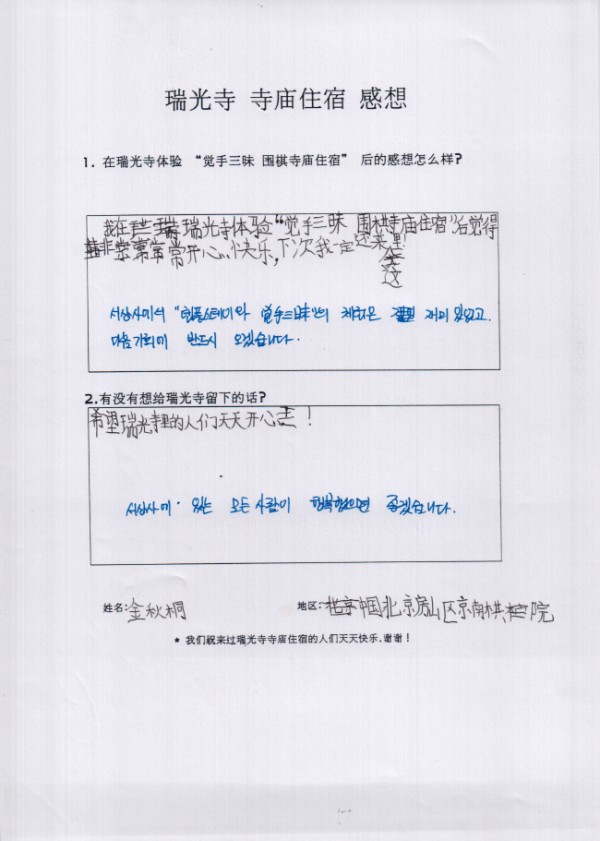 瑞光寺 寺庙住宿 感想
1. 在瑞光寺体验 “觉手三昧 围棋寺庙住宿” 后的感想怎么样?
我在瑞光寺体验“觉手三昧 围棋寺庙住宿”后觉得
非常开心、快乐,下次我一定还来这里
"템플스테이와 觉手三昧"의 체험은 재미 있었고.
다음기회에 반드시 오겠습니다.
2.有没有想给瑞光寺留下的话?
希望瑞光寺里的人们天天开心!
있는 모든 사람이 행복했으면 좋겠습니다.
姓名: 金秋桐
地区: 中国北京房山区京南棋院
* 我们祝来过瑞光寺寺庙住宿的人们天天快乐.谢谢!